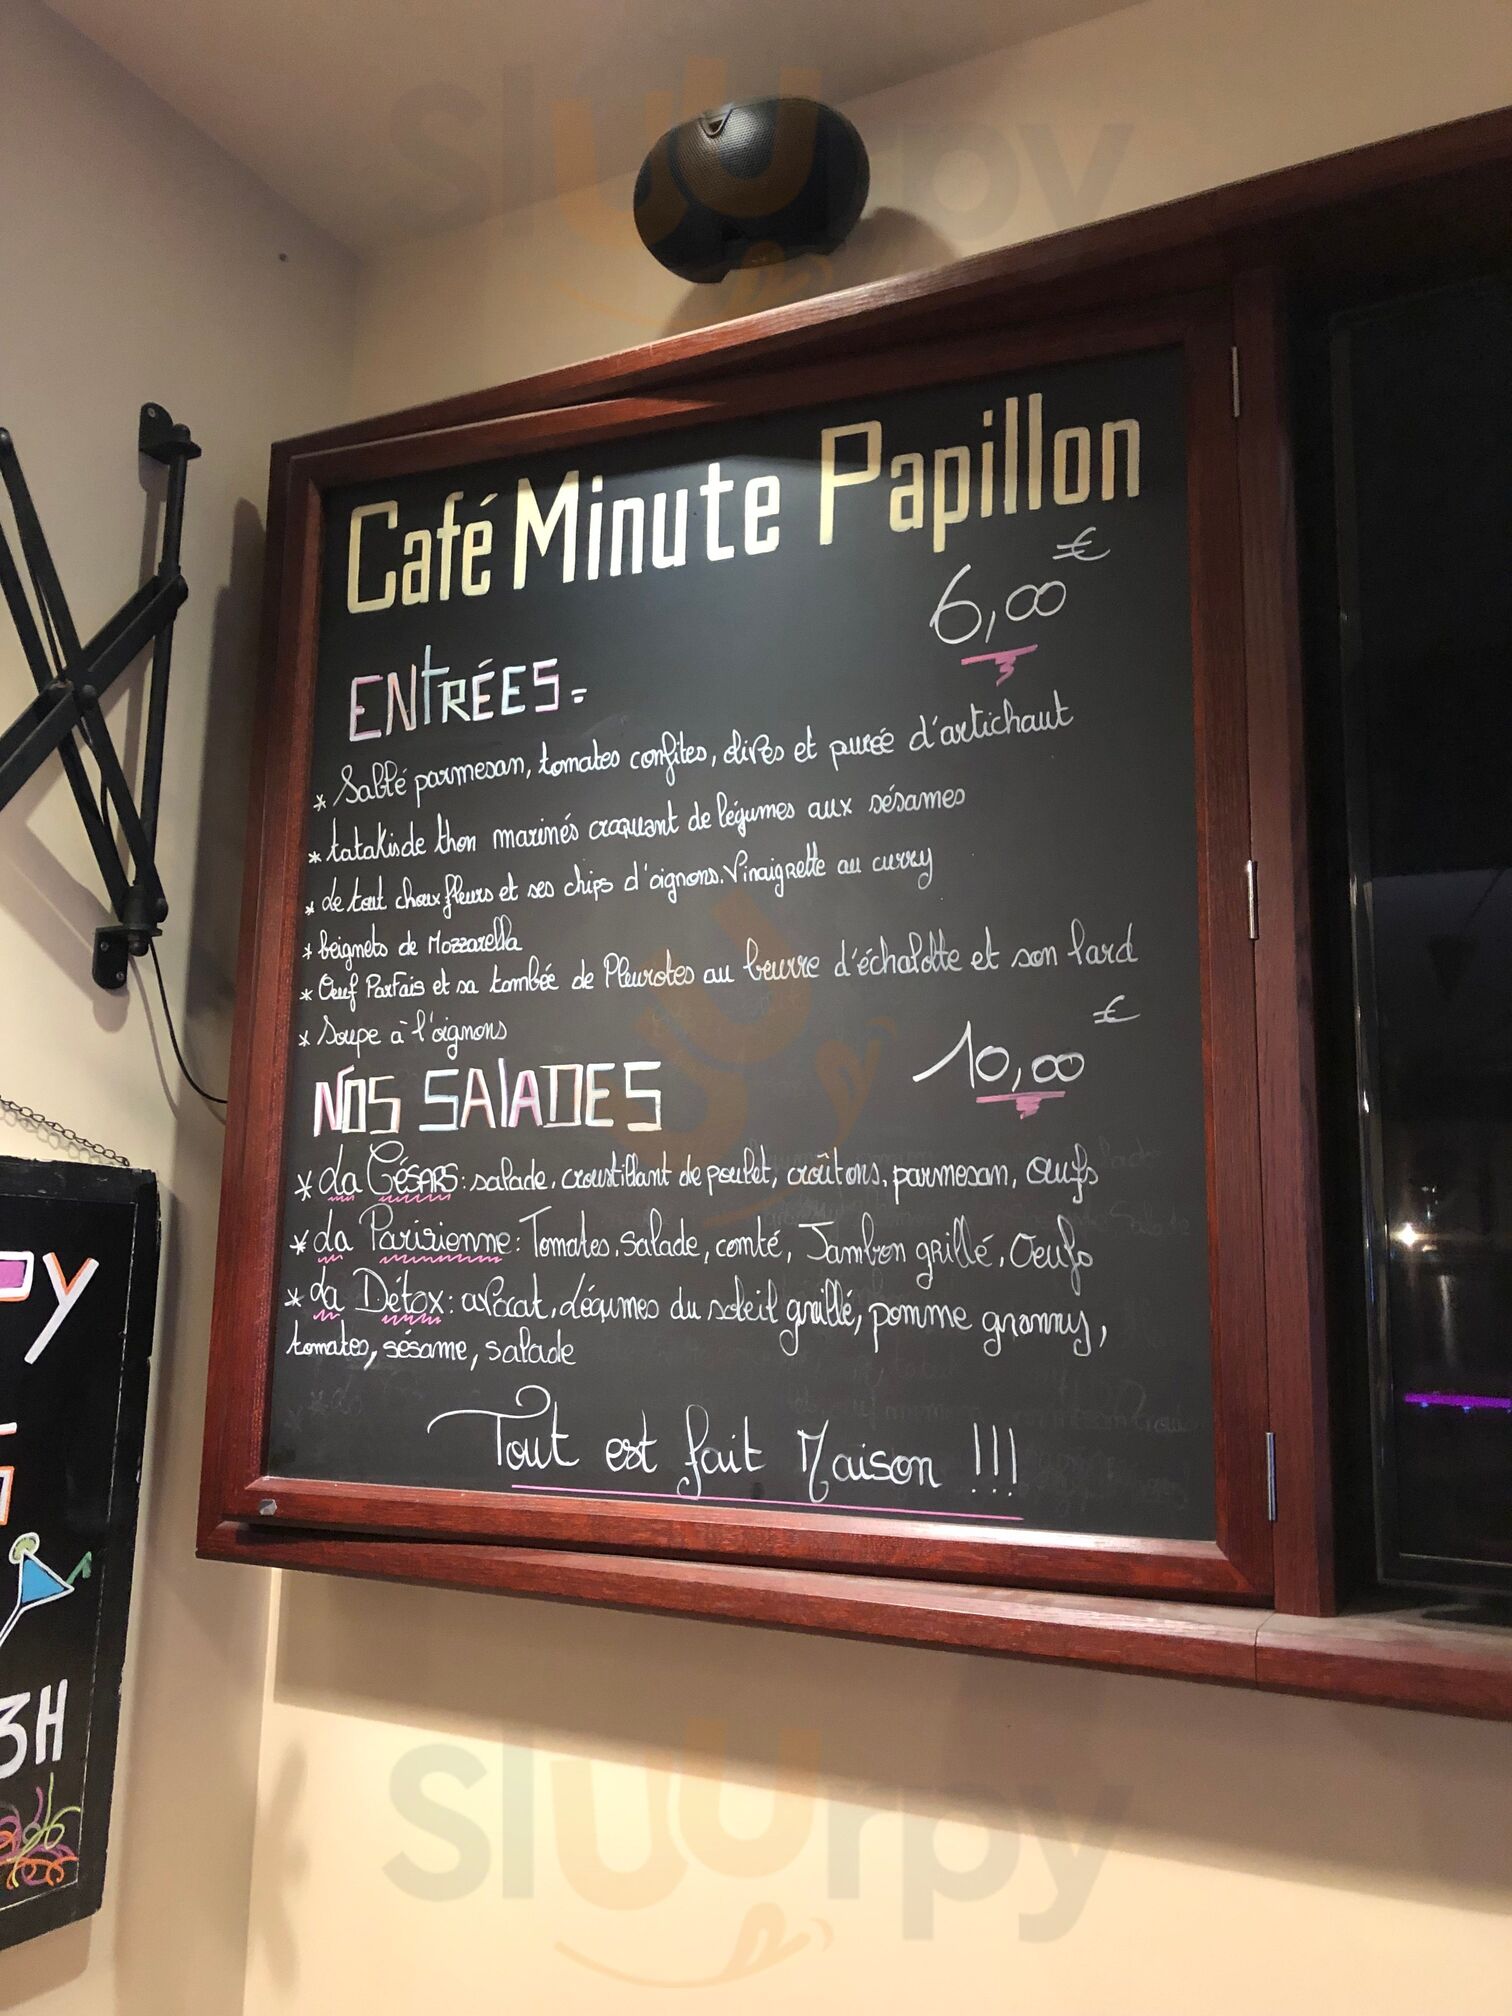 sluurpy
Café Minute Papillon
6,00€
ENTRÉES=
* Sablé parmesan, tomates confites, olives et purée d'artichaut
* tatakis de thon marinés croquant de légumes aux sésames
* Le tout chou fleurs et ses chips d'oignons. Vinaigrette au curry
* beignets de Mozzarella
* Oeuf Parfais et sa tombée de Pleurotes au beurre d'échalotte et son lard
* Soupe à l'oignons
NOS SALADES
10,00€
* La CÉSARS: salade, croustillant de poulet, croûtons, parmesan, Oeufs
* La Parisienne: Tomates, Salade, comté, Jambon grillé, Oeufs
* La Détox: avocat, Légumes du soleil grillé, pomme granny,
tomates, sésame, salade
Tout est fait Maison !!!
PY
3H
sluurpy